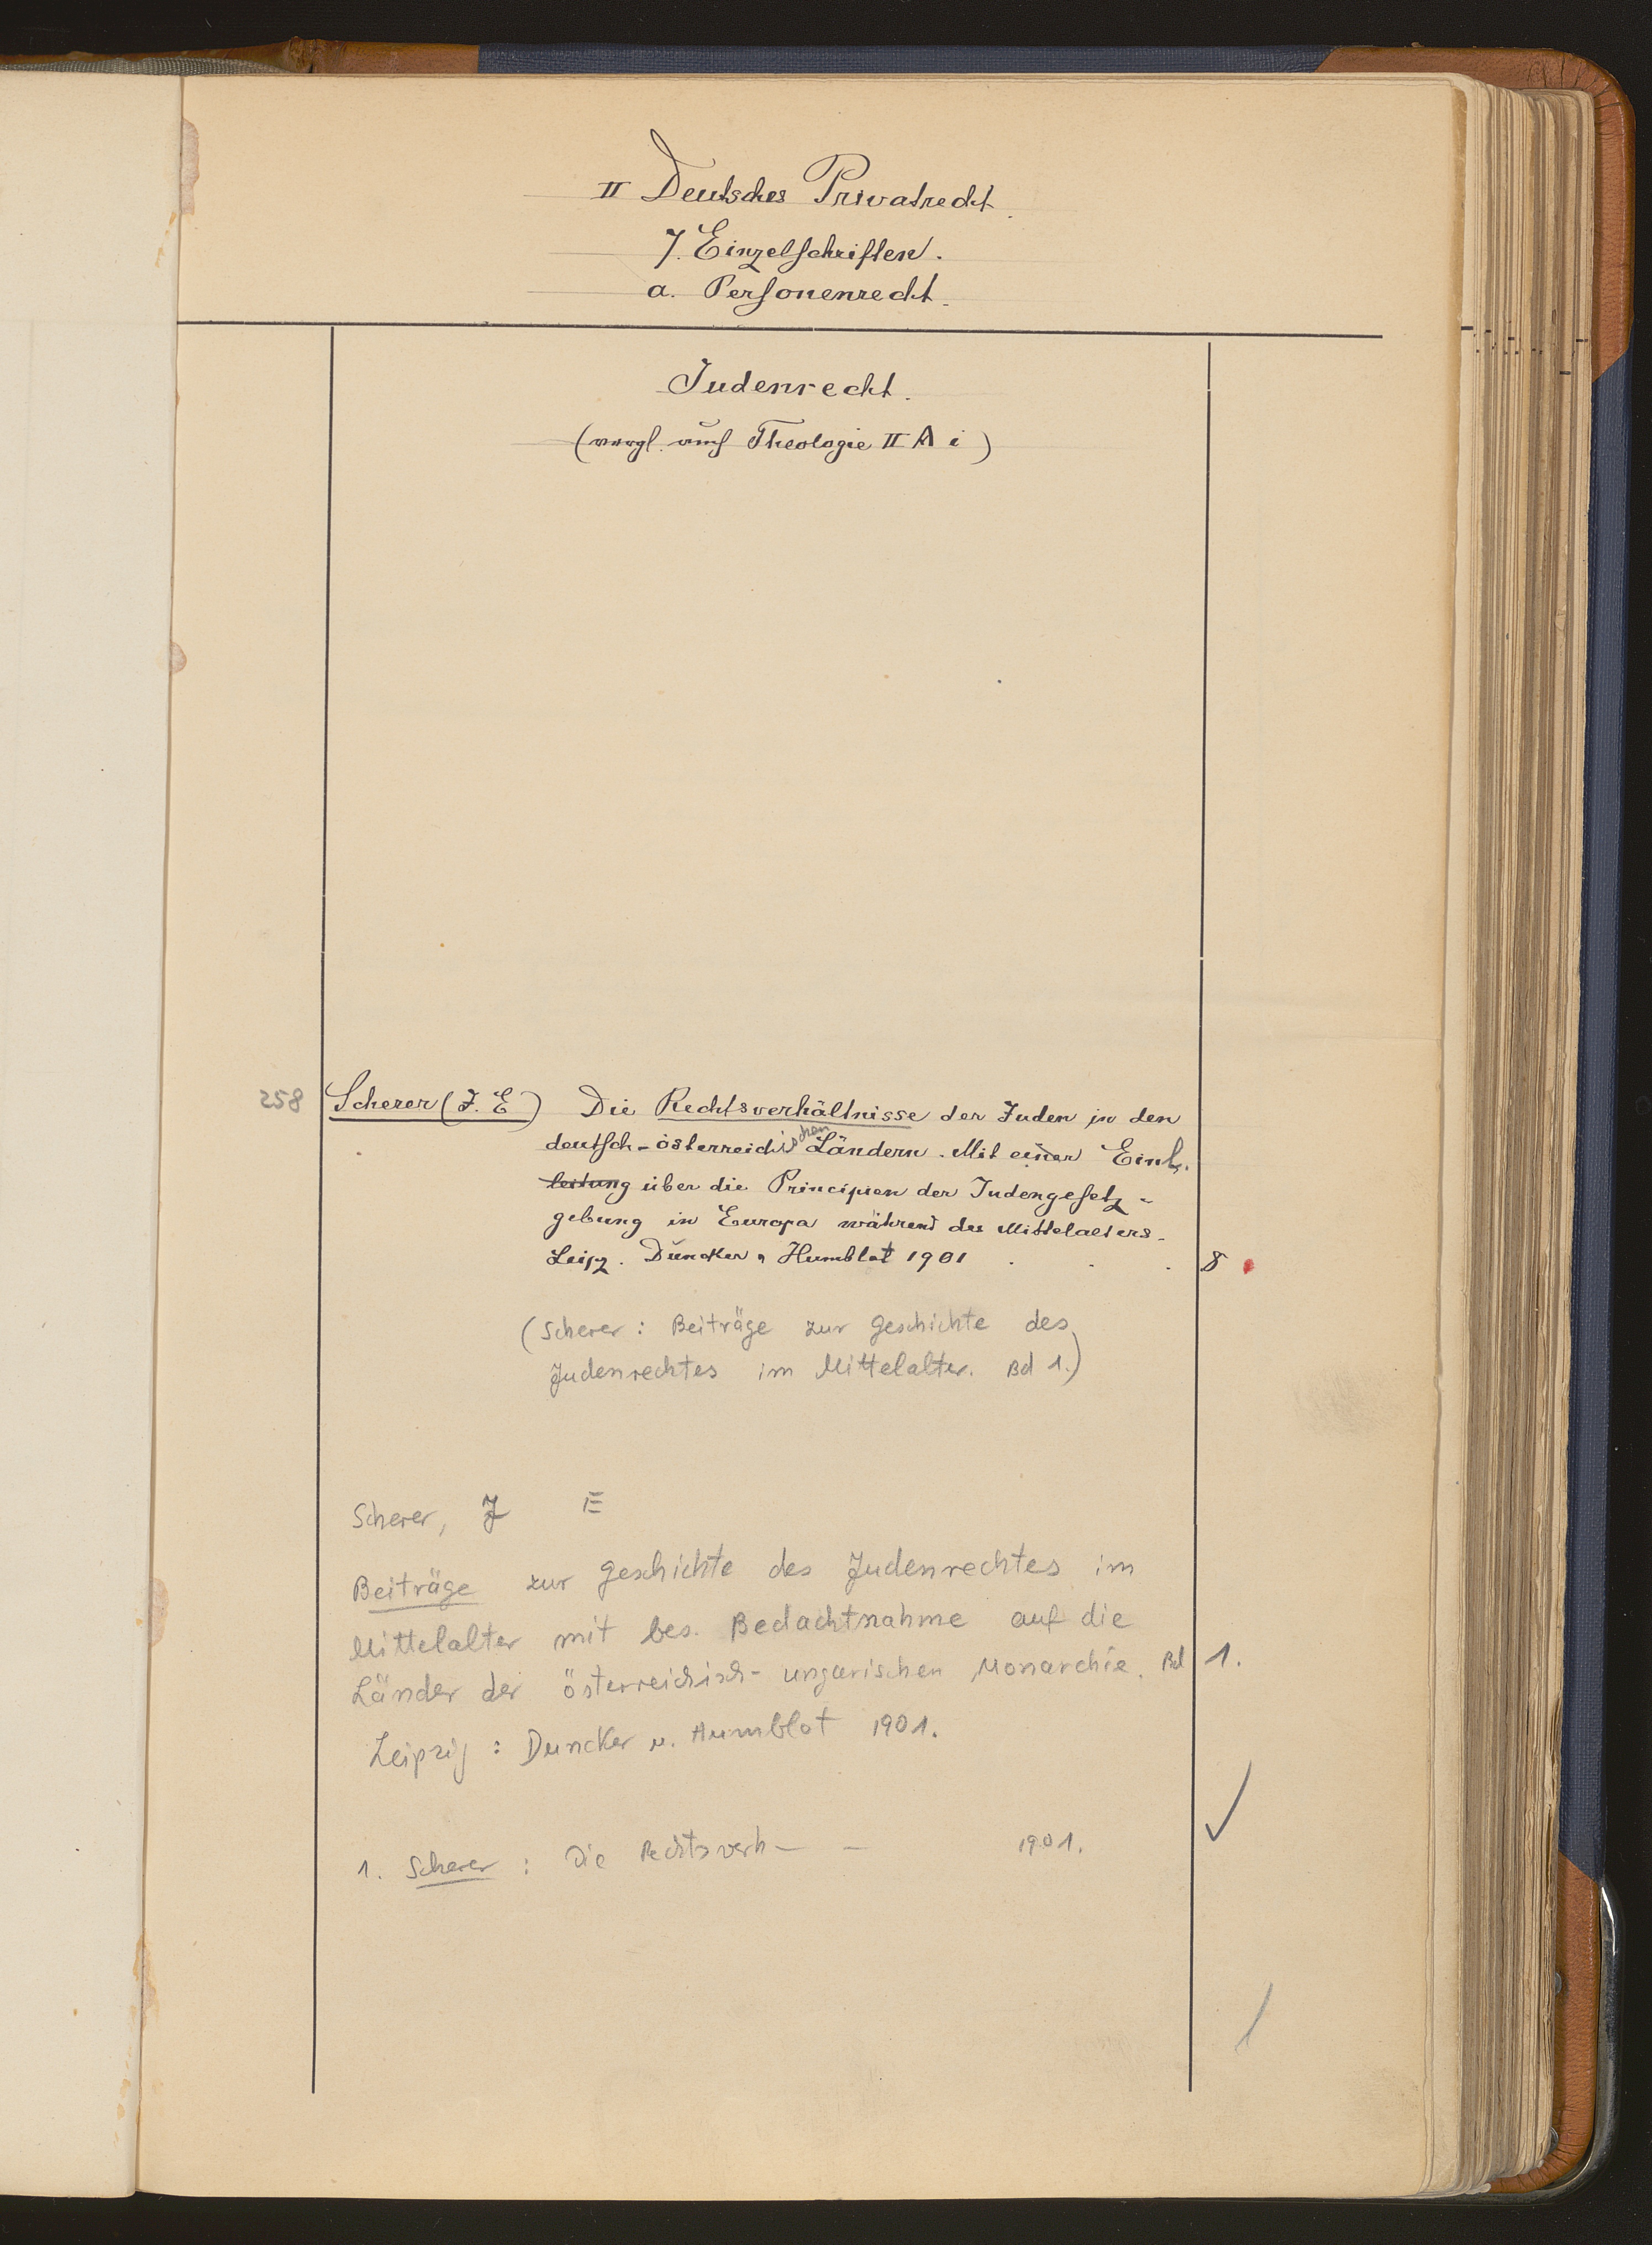 II Deutsches Privatrecht.
7. Einzelschriften.
a. Personenrecht.
Judenrecht.
(vergl. auch Theologie II A i)
258 Scherer (J. E) Die Rechtsverhältnisse der Juden in den
deutsch-österreichischen Ländern. Mit einer Einl.
leitung über die Principien der Judengesetz-
gebung in Europa während des Mittelalters.
Leipz. Duncker u Humblot 1901 . . . 8
(Scherer: Beiträge zur Geschichte des
Judenrechtes im Mittelalter. Bd 1.)
Scherer, J E
Beiträge zur Geschichte des Judenrechtes im
Mittelalter mit bes. Bedachtnahme auf die
Länder der österreichisch-ungarischen Monarchie. Bd 1.
Leipzig: Duncker u. Humblot 1901.
1. Scherer: Die Rechtsverh — — 1901.